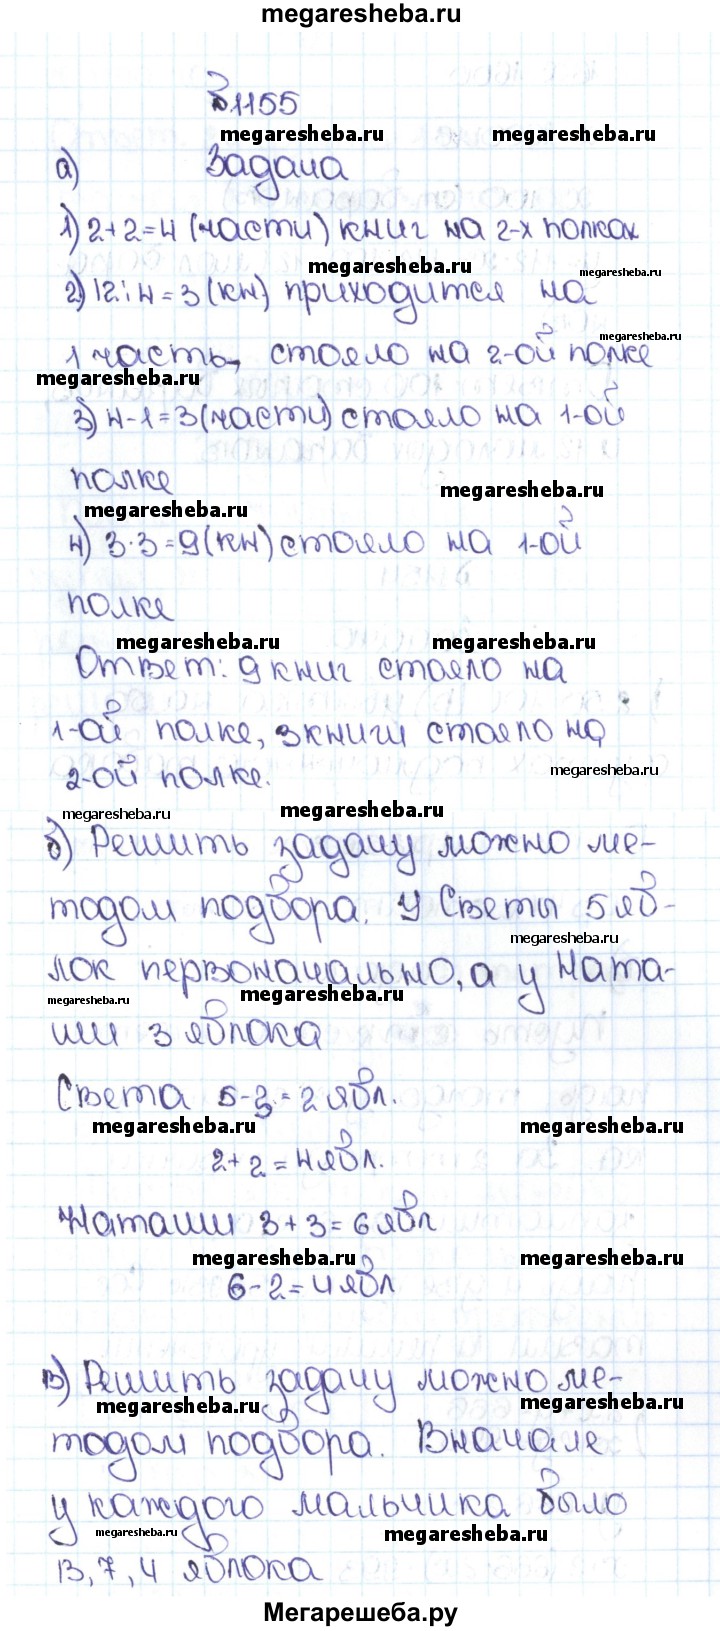 megaresheba.ru
№1155
megaresheba.ru megaresheba.ru
а) Задача
1) 2+2=4 (части) книг на 2-х полках
megaresheba.ru megaresheba.ru
2) 12:4=3 (кн) приходится на
megaresheba.ru
1 часть, стояло на 2-ой полке
megaresheba.ru
3) 4-1=3 (части) стояло на 1-ой
полке
megaresheba.ru
megaresheba.ru
4) 3·3=9 (кн) стояло на 1-ой
полке
megaresheba.ru megaresheba.ru
Ответ: 9 книг стояло на
1-ой полке, 3 книги стояло на
2-ой полке.
megaresheba.ru
megaresheba.ru megaresheba.ru
б) Решить задачу можно ме-
тодом подбора. У Светы 5 яб-
megaresheba.ru
лок первоначально, а у Ната-
megaresheba.ru megaresheba.ru
ши 3 яблока
Света 5-3=2 ябл.
megaresheba.ru megaresheba.ru
2+2=4 ябл.
Наташи 3+3=6 ябл
megaresheba.ru megaresheba.ru
6-2=4 ябл
в) Решить задачу можно ме-
megaresheba.ru megaresheba.ru
тодом подбора. Вначале
у каждого мальчика было
megaresheba.ru megaresheba.ru
13, 7, 4 яблока
Мегарешеба.ру